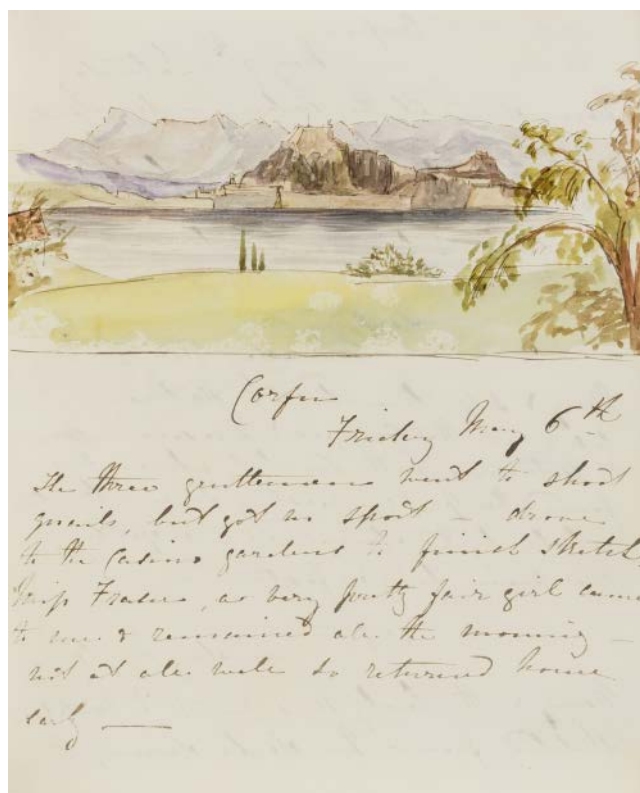 Corfu
Friday May 6th
The three gentlemen went to shoot
quails, but got no sport – drove
to the Casino gardens to finish sketch,
Miss Fraser, a very pretty fair girl came
to me & remained all the morning –
not at all well so returned home
early —